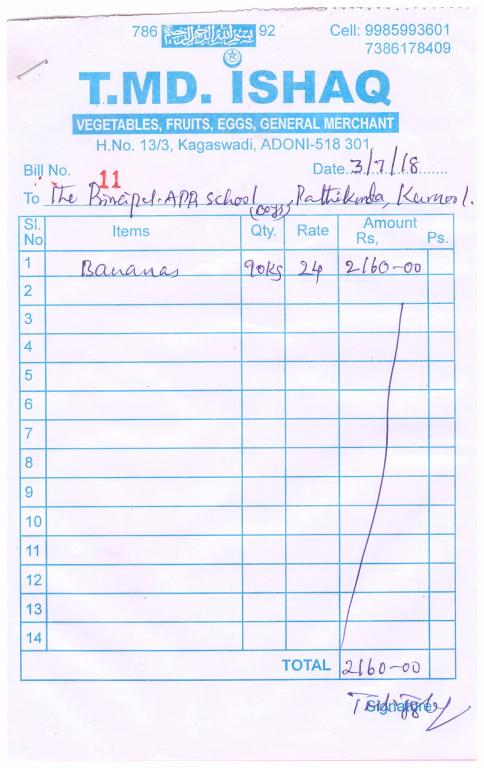 786 92
Cell: 9985993601
7386178409
T.MD. ISHAQ
VEGETABLES, FRUITS, EGGS, GENERAL MERCHANT
H.No. 13/3, Kagaswadi, ADONI-518 301
Bill No. 11 Date. 3/7/18
To The Principal. APR School (Boys), Pathikonda, Kurnool.
Sl. No Items Qty. Rate Amount Rs, Ps.
1 Bananas 90kg 24 2160-00
2
3
4
5
6
7
8
9
10
11
12
13
14
TOTAL 2160-00
Signature